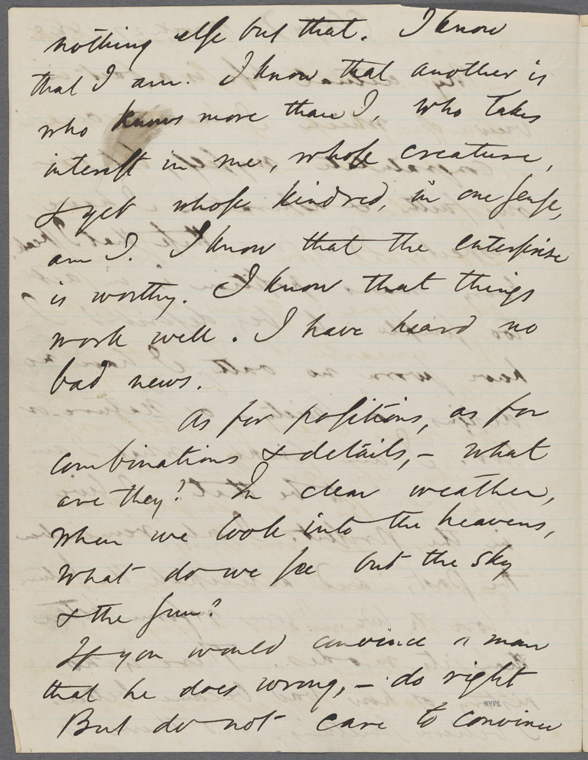 nothing else but that. I know
that I am. I know that another is
who knows more than I, who takes
interest in me, whose creature,
& yet whose kindred, in one sense,
am I. I know that the enterprise
is worthy. I know that things
work well. I have heard no
bad news.
As for positions, as for
combinations & details,— what
are they? In clear weather,
when we look into the heavens,
what do we see but the sky
& the sun?
If you would convince a man
that he does wrong,— do right
But do not care to convince
NYPL